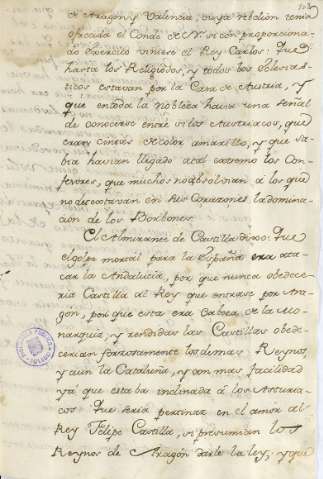 de Aragon, y Valencia, cuya rebelion tenia
ofrecida el Conde de si con proporciona-
do Exercito viniese el Rey Carlos: Que
hasta los Religiosos, y todos los Eclesias-
ticos estavan por la Casa de Austria, y
que en toda la Nobleza havia una señal
de conocerse entre si los Austriacos, que
eran cintas de color amarillo, y que sa-
bia havian llegado a tal extremo los Con-
fesores, que muchos no absolvian a los que
no detextavan en sus Corazones la domina-
cion de los Borbones.
El Almirante de Castilla dixo: Que
el golpe mortal para la España era ata-
car la Andalucia, por que nunca obedece-
ria Castilla al Rey que entrase por Ara-
gon, por que esta era Cabeza de la Mo-
narquia, y rendidas las Castillas obede-
cerian forzosamente los demas Reynos,
y aun la Cataluña, y con mas facilidad
ya que estaba inclinada à los Austria-
cos: Que seria pertinaz en el amor al
Rey Felipe Castilla, si presumian los
Reynos de Aragon darle la ley, y que